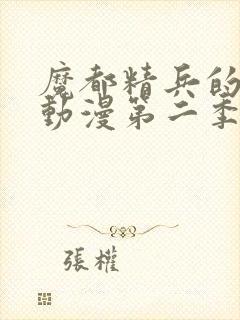 魔都精兵的
動漫第二季
張權